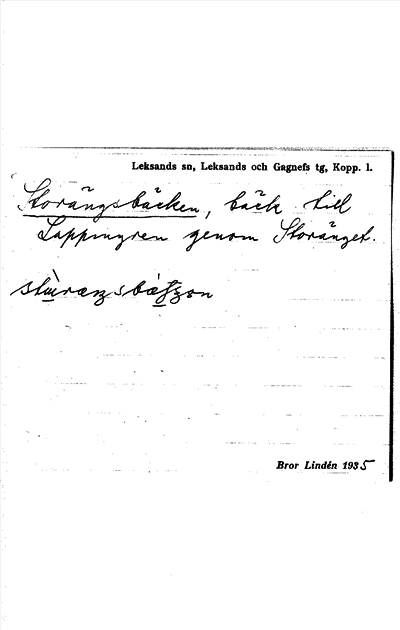 Leksands sn, Leksands och Gagnefs tg, Kopp. l.
Storängsbäcken, bäck till
Lappmyren genom Storänget.
Bror Lindén 1935